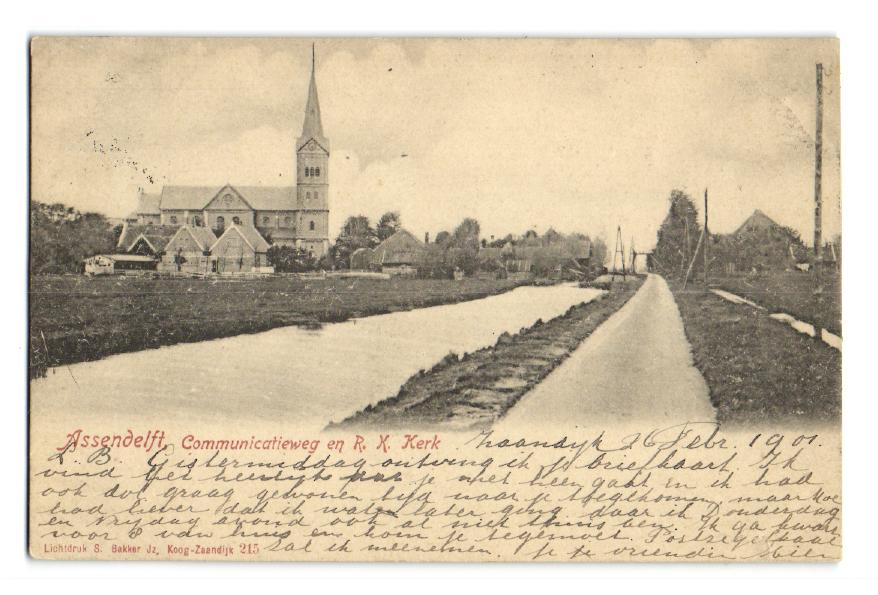 Assendelft, Communicatieweg en R. K. Kerk
Zaandyk 26 Febr. 1901.
L. B. Gistermiddag ontving ik je briefkaart. Ik
vind het je niet heen gaat en ik had
ook dol graag gewonen tyd naar je toegekomen, maar hoe
had liever dat ik wat later ging, daar ik Donderdag
en Vrijdag avond ook al niet thuis ben. Ik ga kwart
voor 8 van huis en kom je tegemoet. Postzegel
zal ik meenemen. Je te vriendin
Lichtdruk S. Bakker Jz, Koog-Zaandijk 215